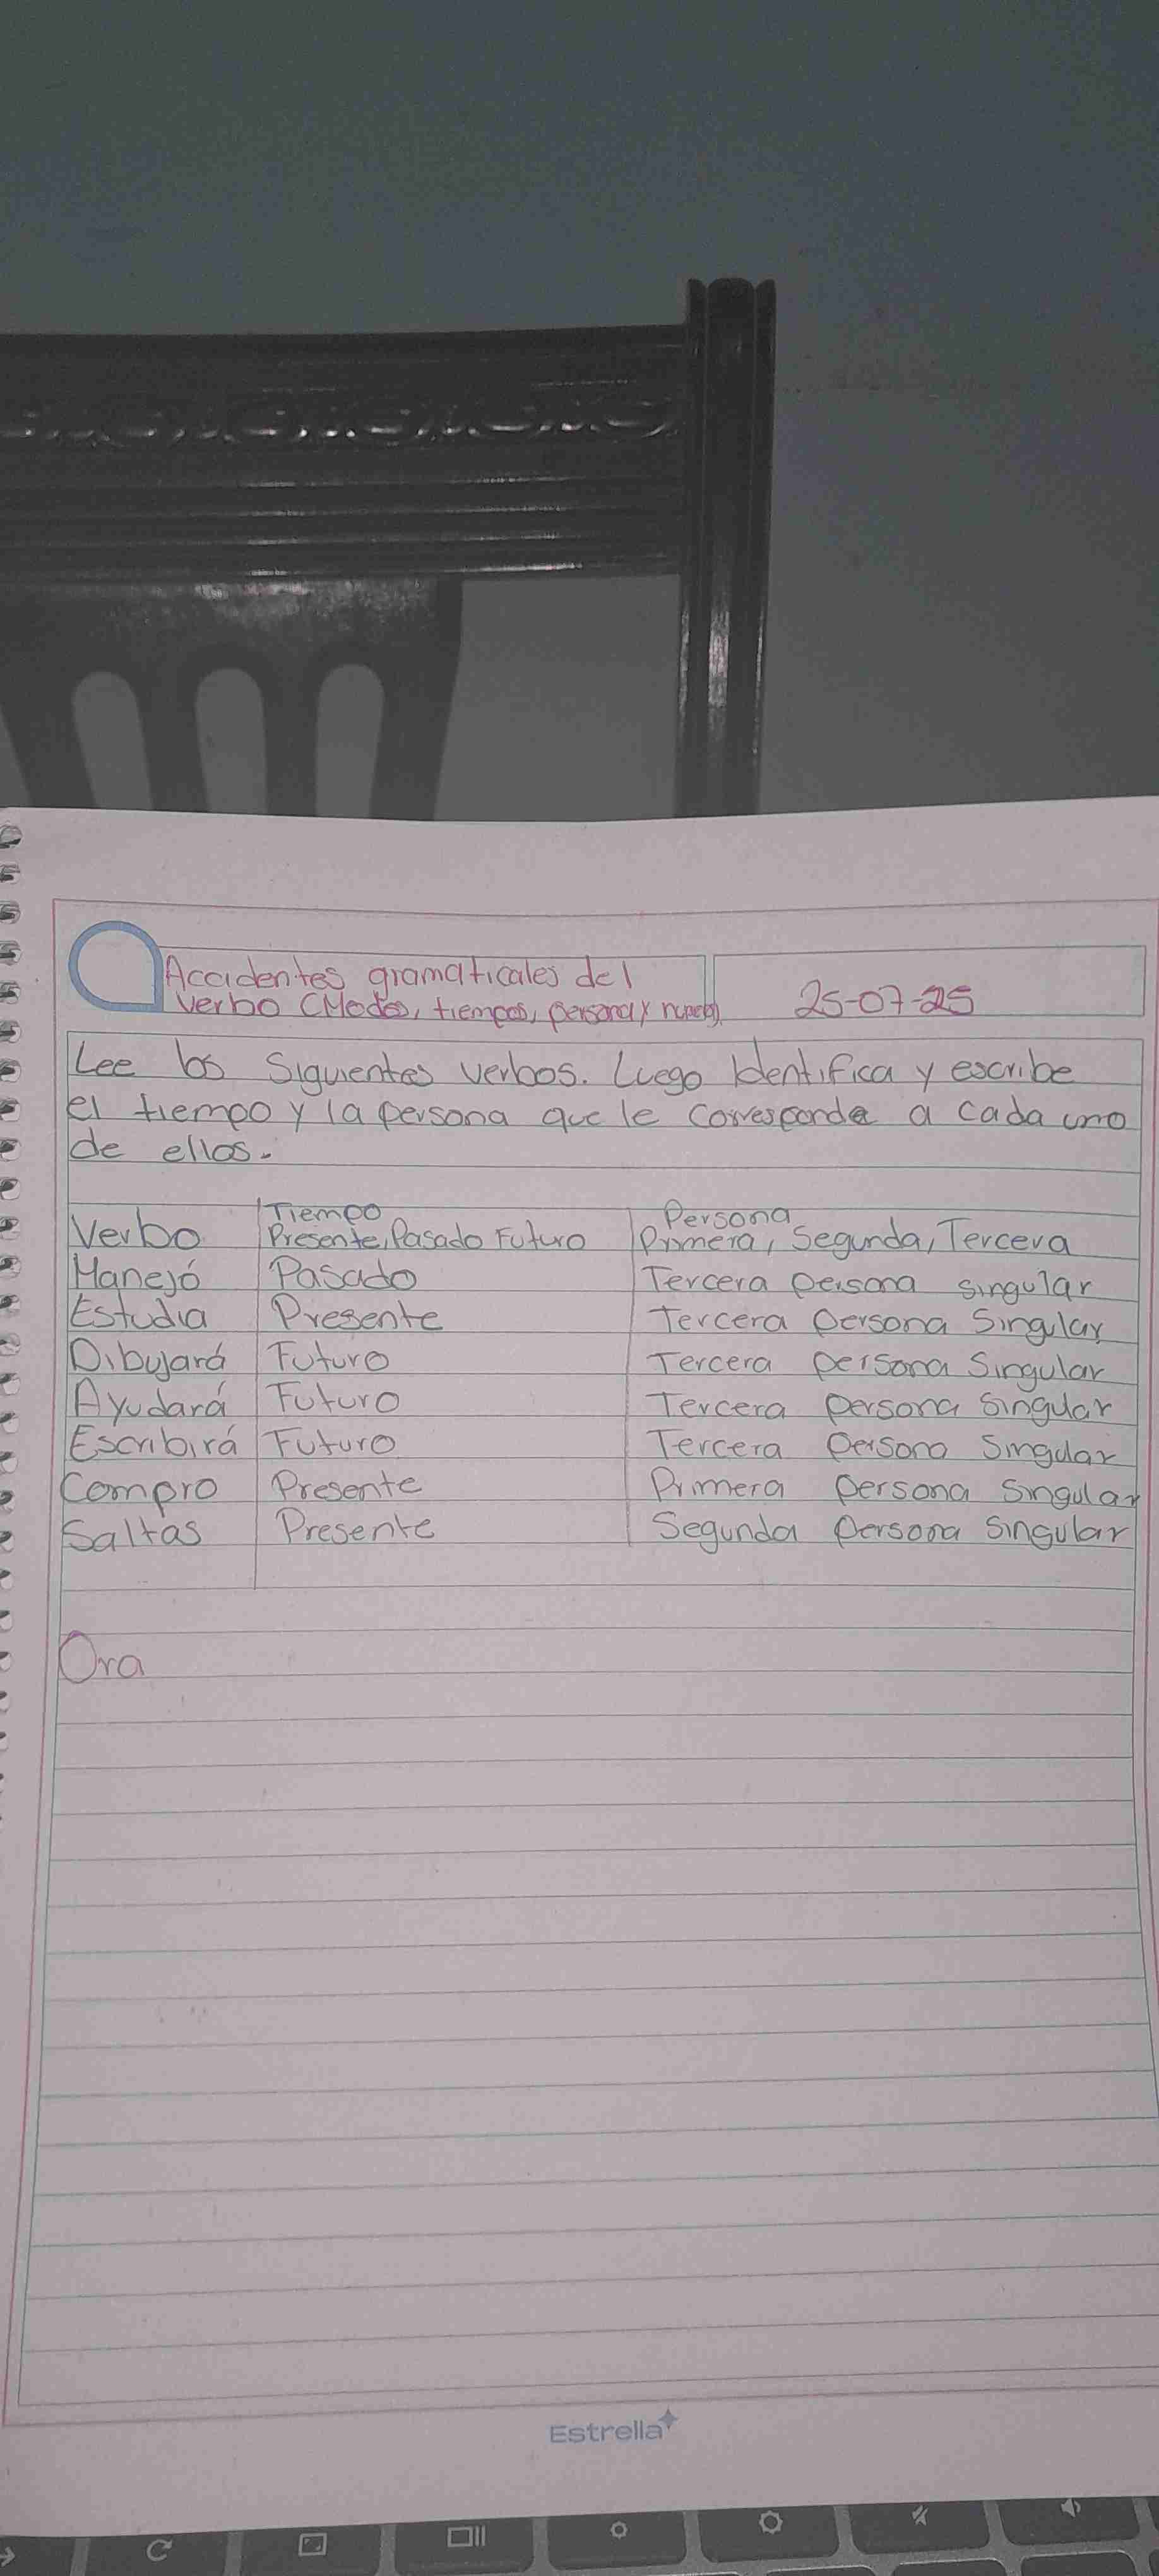 Accidentes gramaticales del
verbo (Modos, tiempos, persona y numero)
25-07-25
Lee los Siguientes verbos. Luego Identifica y escribe
el tiempo y la persona que le corresponde a cada uno
de ellos.
Verbo Tiempo Presente, Pasado Futuro Persona Primera, Segunda, Tercera
Manejó Pasado Tercera persona singular
Estudia Presente Tercera persona Singular
Dibujará Futuro Tercera persona Singular
Ayudará Futuro Tercera persona Singular
Escribirá Futuro Tercera persona Singular
Compro Presente Primera persona Singular
Saltas Presente Segunda persona Singular
Ora
Estrella